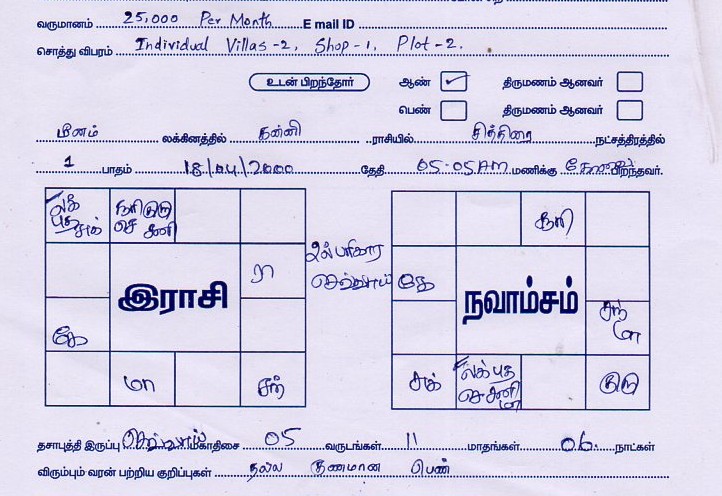 வருமானம் 25,000 Per Month E mail ID
சொத்து விபரம் Individual Villas-2, Shop-1, Plot-2.
உடன் பிறந்தோர் ஆண் ✓ திருமணம் ஆனவர்
பெண் திருமணம் ஆனவர்
மீனம் லக்கினத்தில் கன்னி ராசியில் சித்திரை நட்சத்திரத்தில்
1 பாதம் 18/04/2000 தேதி 05-05 AM மணிக்கு பிறந்தவர்.
லக் புத சுக்
சூரி குரு செ சனி
ரா
இராசி
கே
மா
சந்
செவ்வாய்
சூரி
கே
நவாம்சம்
சந்
ரா
சுக்
லக் புத செ சனி மா
குரு
தசாபுத்தி இருப்பு செவ்வாய் மகாதிசை 05 வருடங்கள் 11 மாதங்கள் 06 நாட்கள்
விரும்பும் வரன் பற்றிய குறிப்புகள் நல்ல குணமான பெண்